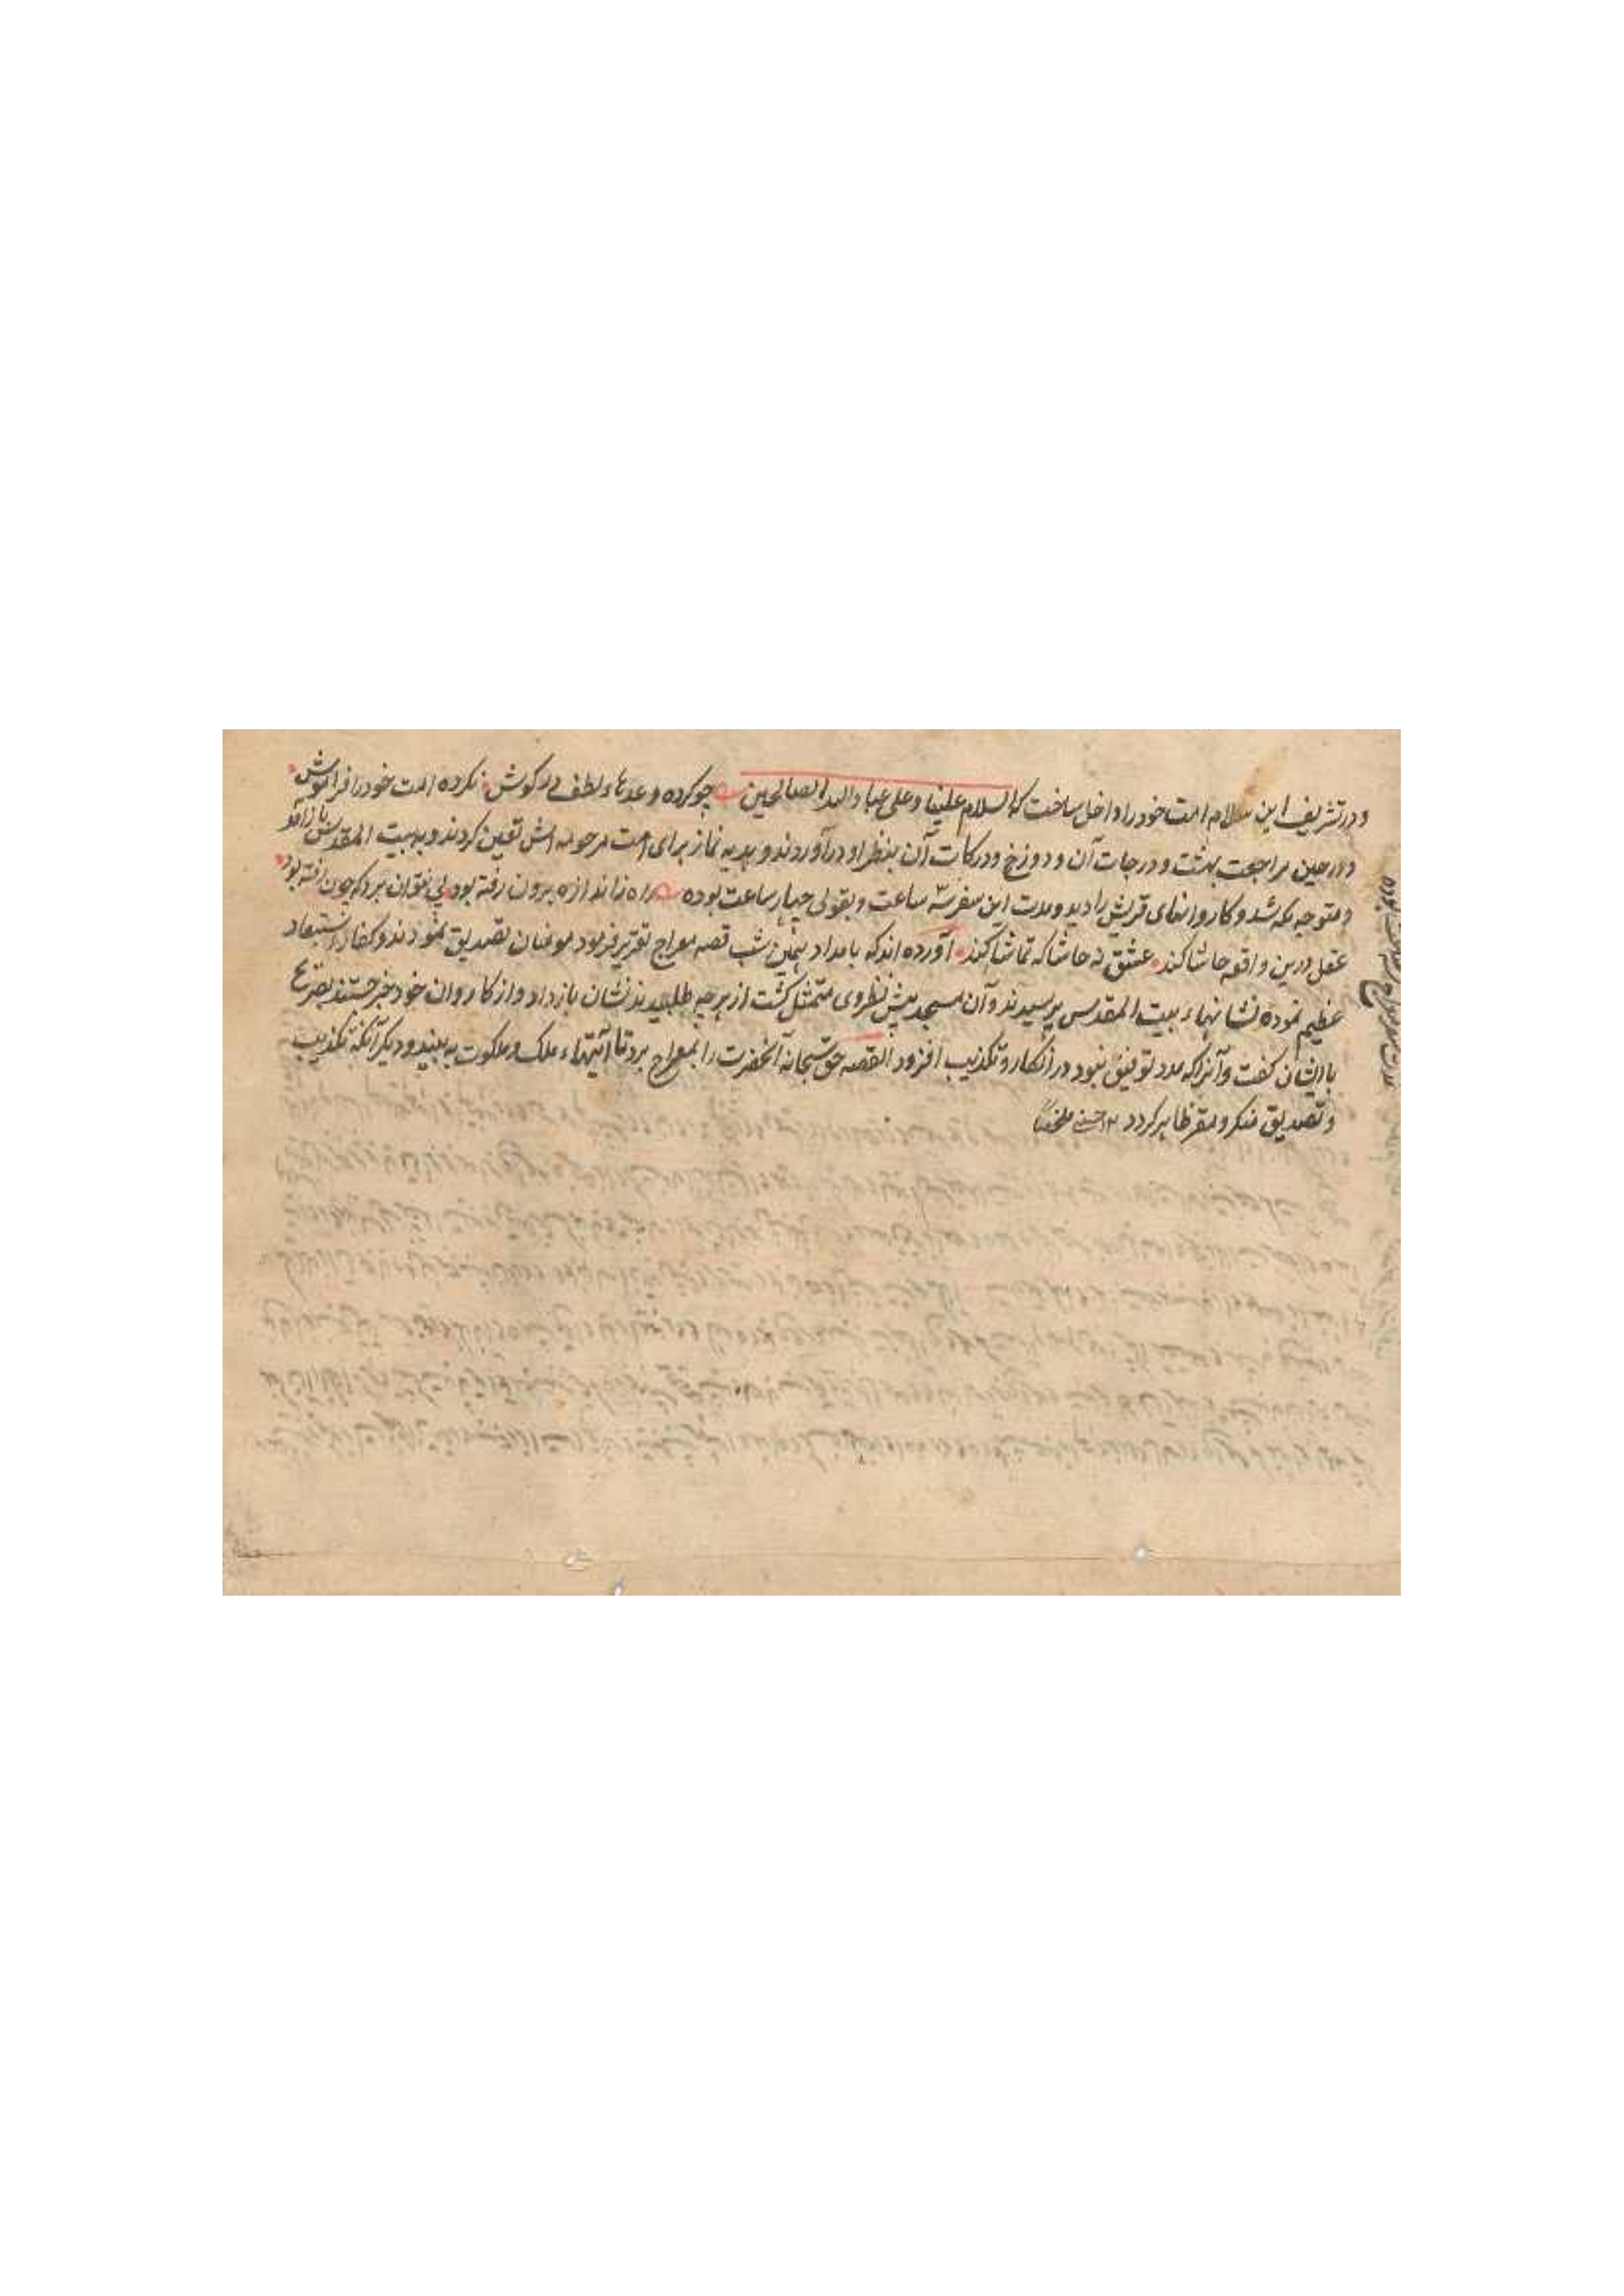 و در تشریف این سلام امت خود را داخل ساخت که السلام علینا و علی عباد الله الصالحین چو کرده وعدهاء لطف حق گوش نکرده امت خود را فراموش
و در حین مراجعت بهشت و درجات آن و دوزخ و درکات آن بنظر او در آوردند و هدیه نماز برای امت مرحومه اش تعین کردند و به بیت المقدس باز آمد
و متوجه مکه شد و کاروانهای قریش را دید و مدت این سفر سه ساعت و بقولی چهار ساعت بوده راه ز اندازه برون رفته بود پی نتوان برد که چون رفته بود
عقل درین واقعه حاشا کند عشق نه حاشا که تماشا کند آورده اند که بامداد همین شب قصه معراج تقریر فرمود مومنان تصدیق نمودند و کفار استبعاد
عظیم نموده نشانهاء بیت المقدس پرسیدند و آن مسجد پیش نظر وی متمثل گشت از هرچه طلبیدند نشان باز داد و از کاروان خود خبر جستند
با ایشان گفت و آنرا که مدد توفیق نبود در انکار و تکذیب افزود القصه حق سبحانه آنحضرت را بمعراج برد تا آیتهاء ملک و ملکوت به بیند و دیگر آنکه تکذیب
و تصدیق منکر و مقر ظاهر گردد ۱۲ حسینی ملخصا